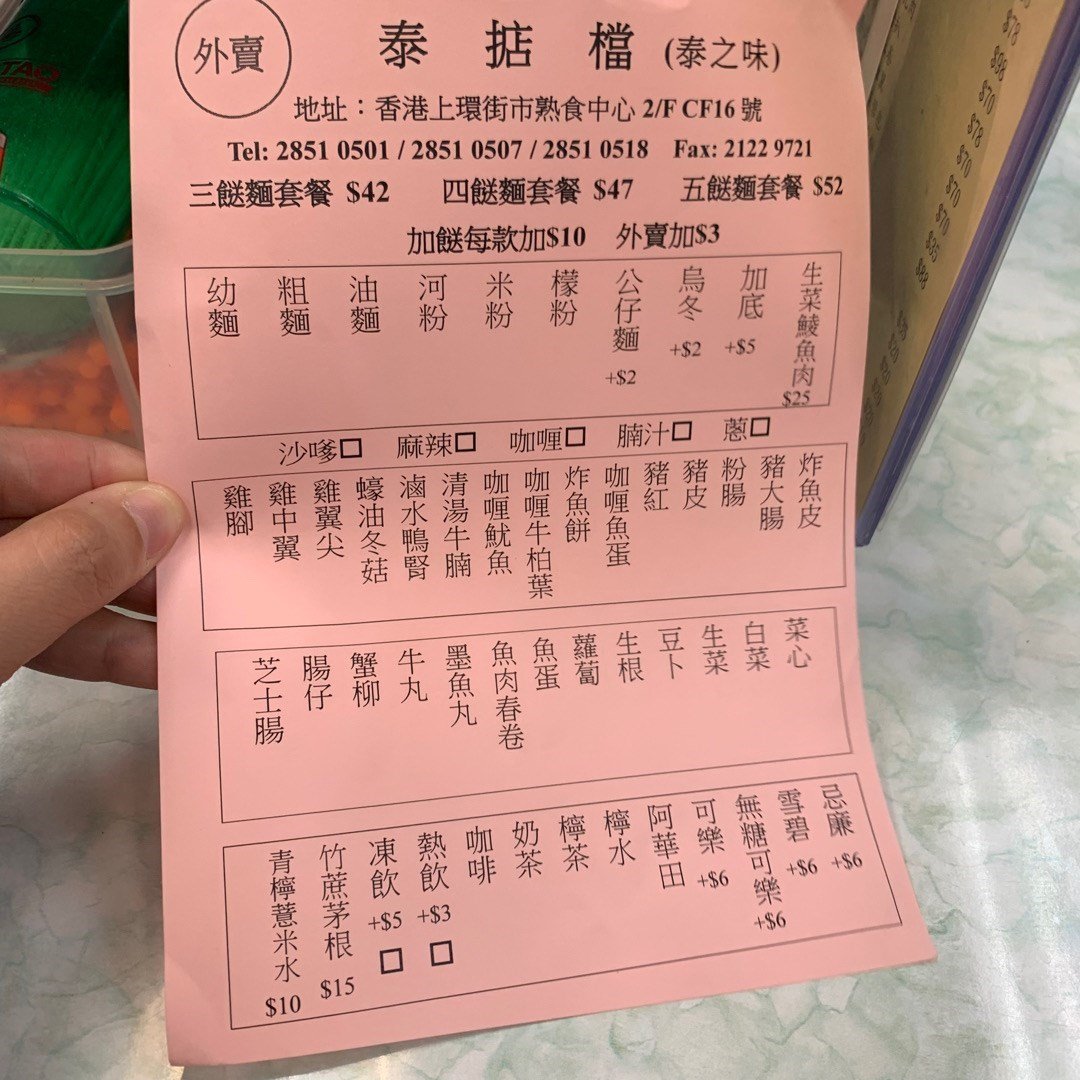 外賣
泰掂檔 (泰之味)
地址：香港上環街市熟食中心 2/F CF16 號
Tel: 2851 0501 / 2851 0507 / 2851 0518 Fax: 2122 9721
三餸麵套餐 $42 四餸麵套餐 $47 五餸麵套餐 $52
加餸每款加$10 外賣加$3
幼麵
粗麵
油麵
河粉
米粉
檬粉
公仔麵 +$2
烏冬 +$2
加底 +$5
生菜鯪魚肉 $25
沙嗲□ 麻辣□ 咖喱□ 腩汁□ 蔥□
雞腳
雞中翼
雞翼尖
蠔油冬菇
滷水鴨腎
清湯牛腩
咖喱魷魚
咖喱牛柏葉
炸魚餅
咖喱魚蛋
豬紅
豬皮
粉腸
豬大腸
炸魚皮
芝士腸
腸仔
蟹柳
牛丸
墨魚丸
魚肉春卷
魚蛋
蘿蔔
生根
豆卜
生菜
白菜
菜心
青檸薏米水 $10
竹蔗茅根 $15
凍飲 +$5 □
熱飲 +$3 □
咖啡
奶茶
檸茶
檸水
阿華田
可樂 +$6
無糖可樂 +$6
雪碧 +$6
忌廉 +$6
TAO
$78
$98
$70
$78
$70
$70
$70
$35
$88